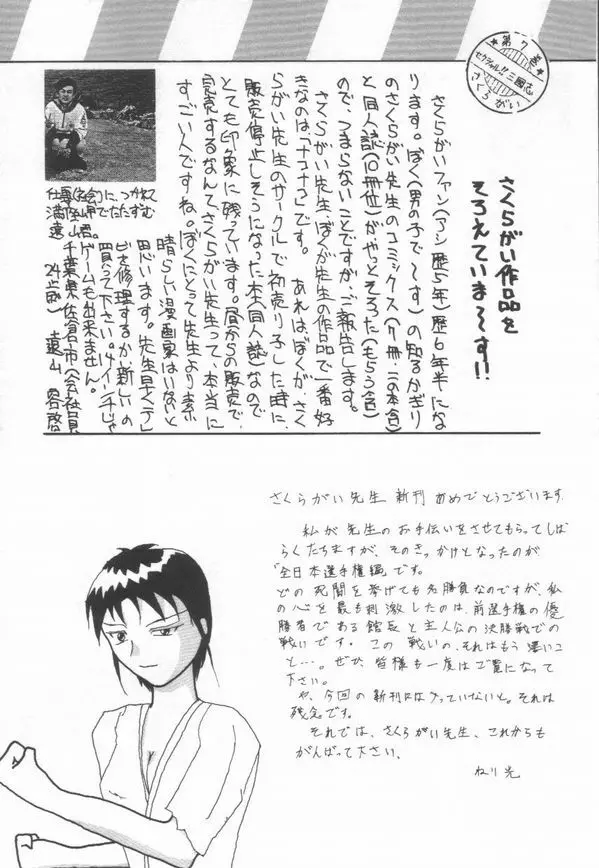 第7巻
セクシャル!!三國志
さくらがい
さくらがい作品を
そろえていま〜す!!
さくらがいファン(アシ歴5年)歴6年半にな
ります。ぼく(男の子で〜す)の知るかぎり
のさくらがい先生のコミックス(9冊・二の本含)
と同人誌(10冊位)がやっとそろた(もらう含)
ので、つまらないことですが、ご報告します。
さくらがい先生、ぼくが先生の作品で一番好
きなのは「ナコナコ」です。あれはぼくが、さく
らがい先生のサークルで初売り子した時に、
販売停止しそうになった本(同人誌)なので
とても印象に残っています。昼からの販売で、
完売するなんて、さくらがい先生って、本当に
すごい人ですね。ぼくにとって先生より素
晴らしい漫画家はいないと
思います。先生早くテレ
ビを修理するかい新しいの
買って下さい。4インチじゃ
ゲームも出来ません。
千葉県佐倉市(会社員
24歳) 遠山
仕事(名会)に、つかれて
満開の丘でたたずむ
遠山君。
さくらがい先生 新刊 おめでとうございます。
私が先生のお手伝いをさせてもらってしば
らくたちますが、そのきっかけとなったのが
「全日本選手権編」です。
どの死闘を挙げても名勝負なのですが、私
の心を最も刺激したのは、前選手権の優
勝者である館長と主人公の決勝戦での
戦いです。この戦いの、それはもう凄いこ
と…。ぜひ皆様も一度はご覧になって
下さい。
や、今回の新刊には入っていないと。それは
残念です。
それでは、さくらがい先生、これからも
がんばって下さい、
ねり光